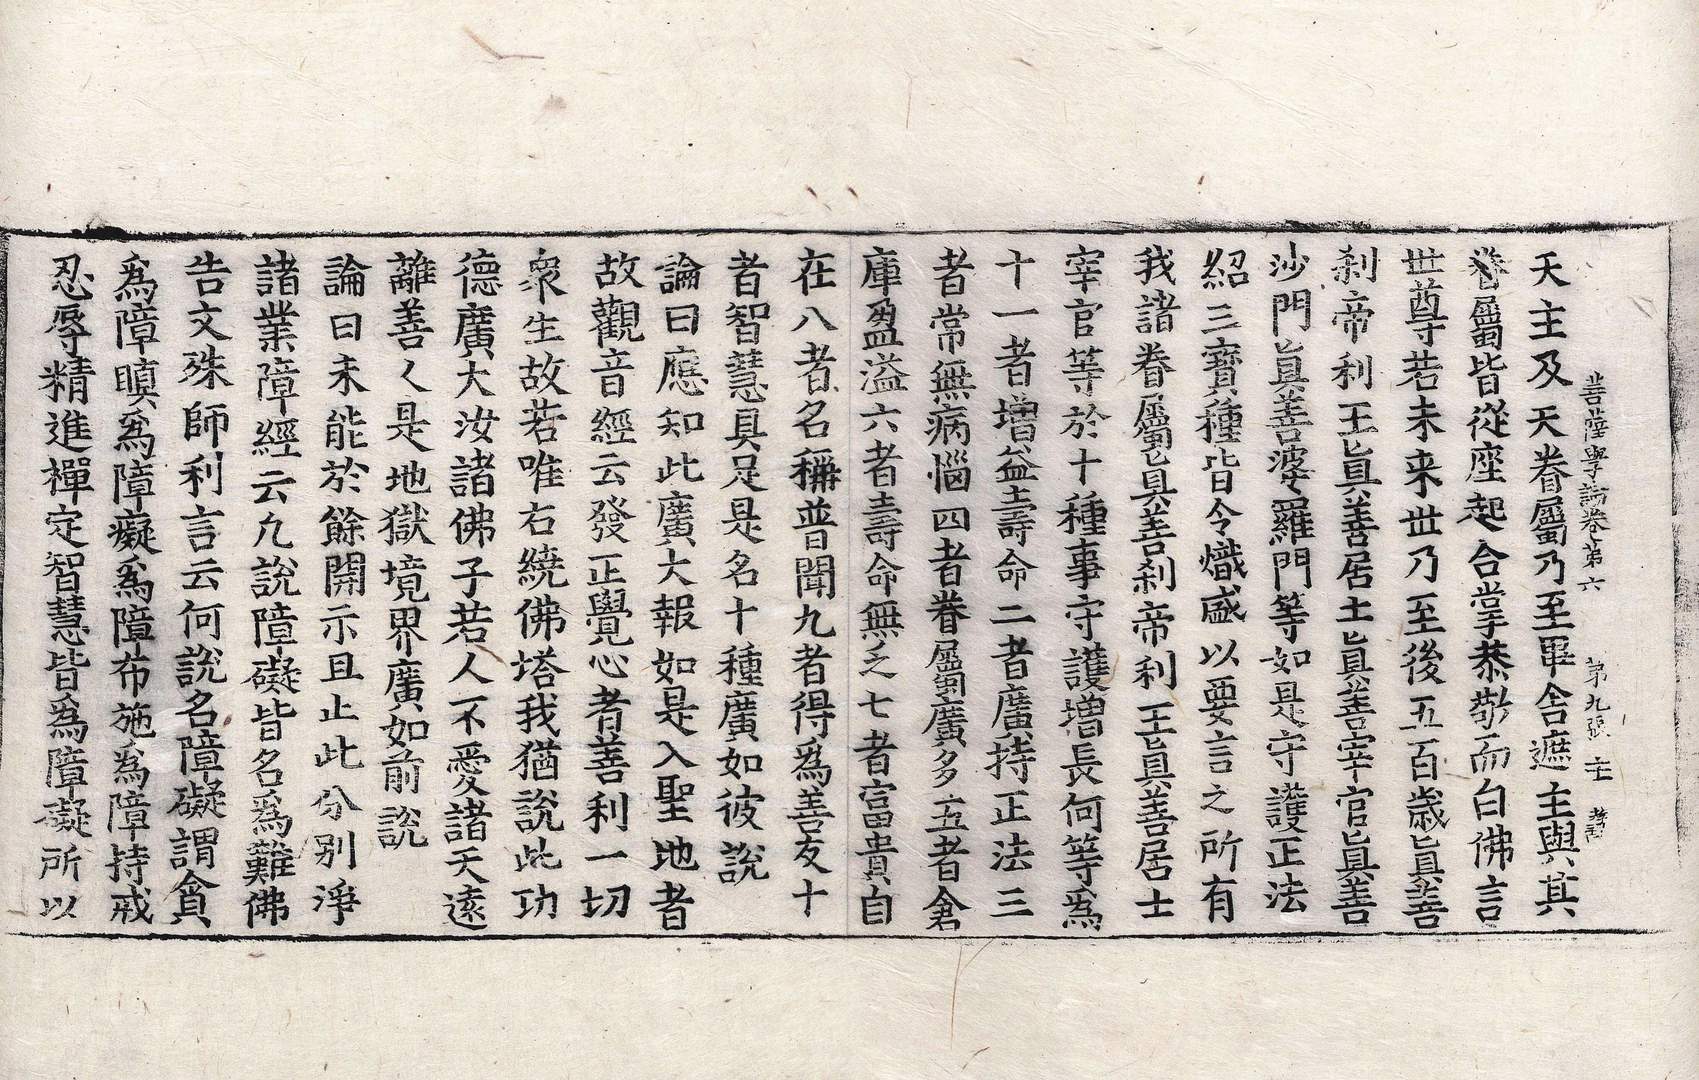 菩薩學論卷第六　第九張　主
天主及天眷屬乃至畢舍遮主與其
眷屬皆從座起合掌恭敬而白佛言
世尊若未来世乃至後五百歲眞善
刹帝利王眞善居士眞善宰官眞善
沙門眞善婆羅門等如是守護正法
紹三寶種皆令熾盛以要言之所有
我諸眷屬眞善刹帝利王眞善居士
宰官等於十種事守護增長何等爲
十一者增益壽命二者廣持正法三
者常無病惱四者眷屬廣多五者倉
庫盈溢六者壽命無乏七者富貴自
在八者名稱普聞九者得爲善友十
者智慧具足是名十種廣如彼說
論曰應知此廣大報如是入聖地者
故觀音經云發正覺心者善利一切
衆生故若唯右繞佛塔我猶說此功
德廣大汝諸佛子若人不愛諸天遠
離善人是地獄境界廣如前說
論曰未能於餘開示且止此分别淨
諸業障經云凢說障礙皆名爲難佛
告文殊師利言云何說名障礙謂貪
爲障瞋爲障癡爲障布施爲障持戒
忍辱精進禪定智慧皆爲障礙所以